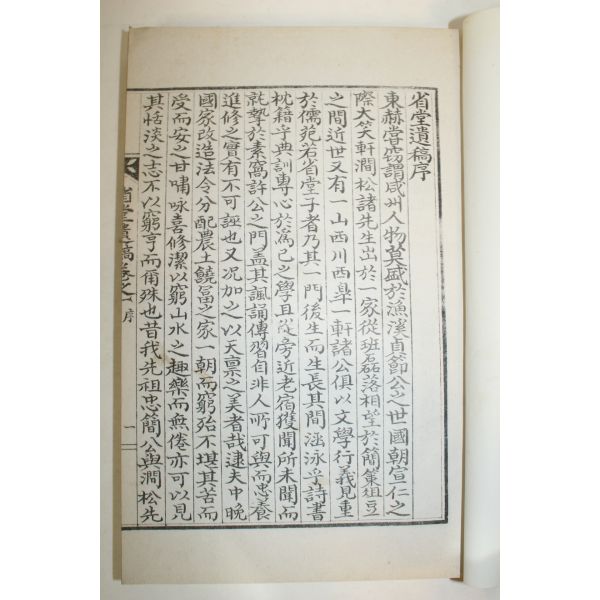 省堂遺稿序
東赫嘗窃謂咸州人物莫盛於漁溪貞節公之世國朝宣仁之
際大笑軒澗松諸先生出於一家從班磊落相望於簡策俎豆
之間近世又有一山西川西皐一軒諸公俱以文學行義見重
於儒苑若省堂子者乃其一門後生而生長其間涵泳乎詩書
枕籍乎典訓專心於爲己之學且從旁近老宿獲聞所未聞而
託摯於素窩許公之門盖其諷誦傳習自非人所可與而忠養
進修之實有不可誣也又况加之以天禀之美者哉逮夫中晩
國家改造法令分配農土饒富之家一朝而窮殆不堪其苦而
受而安之甘嘯咏喜修潔以窮山水之趣樂而無倦亦可以見
其恬淡之志不以窮亨而爾殊也昔我先祖忠簡公與澗松先
省堂遺稿卷之 序 一